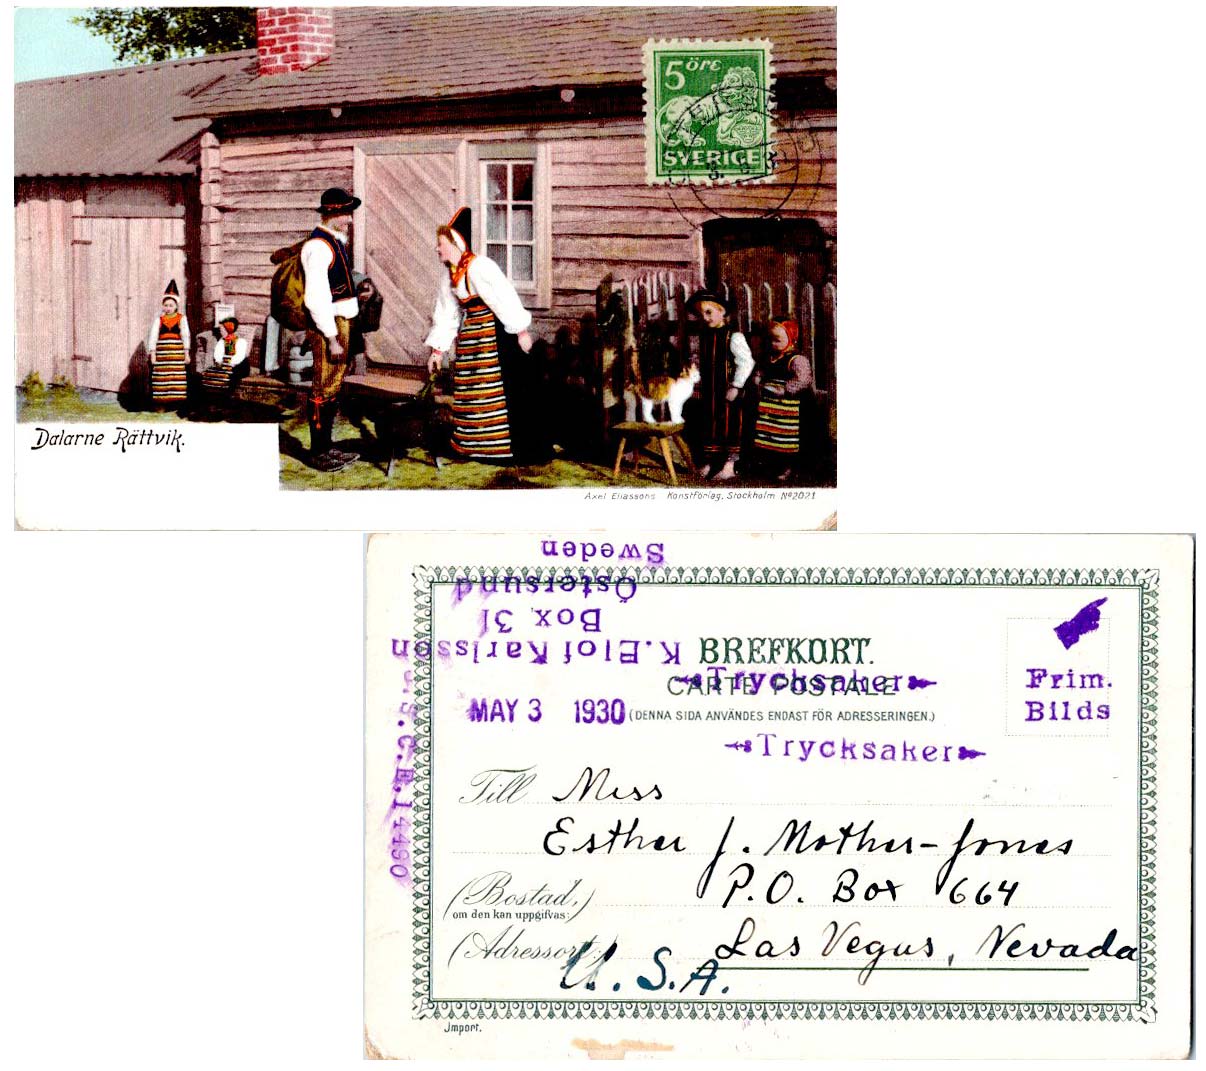 5 ÖRE
SVERIGE
Dalarne Rättvik.
Axel Eliassons Konstförlag, Stockholm No 2021
Sweden
Östersund
Box 31
K. Elof Karlsson
BREFKORT.
CARTE POSTALE
Trycksaker
(DENNA SIDA ANVÄNDES ENDAST FÖR ADRESSERINGEN.)
MAY 3 1930
Frim.
Bilds
Trycksaker
S. C. E. 14490
Till Miss
Esther J. Mother-Jones
(Bostad,) P.O. Box 664
om den kan uppgifvas:
(Adressort:) Las Vegas, Nevada
U.S.A.
Import.